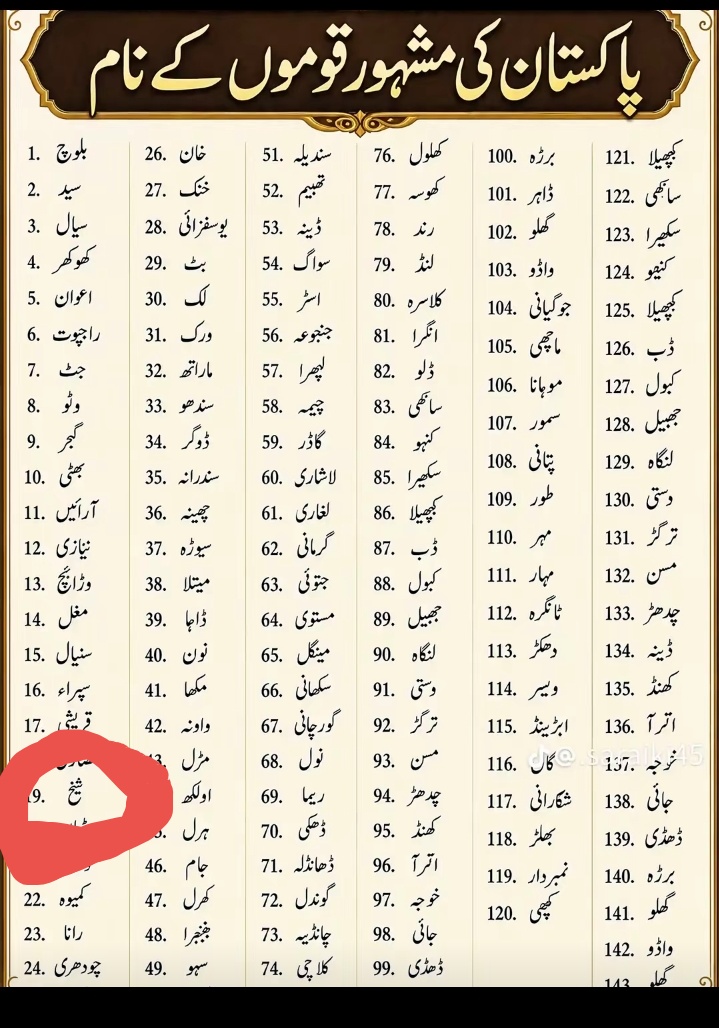 پاکستان کی مشہور قوموں کے نام
1. بلوچ
2. سید
3. سیال
4. کھوکھر
5. اعوان
6. راجپوت
7. جٹ
8. وٹو
9. گجر
10. بھٹی
11. آرائیں
12. نیازی
13. وڑائچ
14. مغل
15. سنیال
16. سپراء
17. قریشی
19. شیخ
22. کمبوہ
23. رانا
24. چودھری
26. خان
27. خٹک
28. یوسفزائی
29. بٹ
30. لک
31. ورک
32. ماراتھ
33. سندھو
34. ڈوگر
35. سندرانہ
36. چھینہ
37. سیوڑہ
38. میتلا
39. ڈاہا
40. نون
41. مکھا
42. واونہ
43. مڑل
اولکھ
ہرل
46. جام
47. کھرل
48. جنجرا
49. سہو
51. سندیلہ
52. تھہیم
53. ڈینہ
54. سواگ
55. اسڑ
56. جنجوعہ
57. لپھرا
58. چیمہ
59. گاڈر
60. لاشاری
61. لغاری
62. گرمانی
63. جتوئی
64. مستوی
65. مینگل
66. سکھانی
67. گورچانی
68. نول
69. ریما
70. ڈھکی
71. ڈھانڈلہ
72. گوندل
73. چانڈیہ
74. کلاچی
76. کھلول
77. کھوسہ
78. رند
79. لنڈ
80. کلاسرہ
81. انگرا
82. ڈلو
83. سانگھی
84. کنہو
85. سکھیرا
86. کچھیلا
87. ڈب
88. کبول
89. جھبیل
90. لنگاہ
91. دستی
92. ترگڑ
93. مسن
94. چدھڑ
95. کھنڈ
96. اترآ
97. خوجہ
98. جائی
99. ڈھڈی
100. برڑہ
101. ڈاہر
102. گھلو
103. واڈو
104. جوگیانی
105. ماچھی
106. موہانا
107. سمور
108. پتانی
109. طور
110. مہر
111. مہار
112. ٹانگرہ
113. دھکڑ
114. ویسر
115. ابڑینڈ
116. گال
117. شکارانی
118. بھلڑ
119. نمبردار
120. کچھی
121. کچھیلا
122. سانگھی
123. سکھیرا
124. کنہو
125. کچھیلا
126. ڈب
127. کبول
128. جھبیل
129. لنگاہ
130. دستی
131. ترگڑ
132. مسن
133. چدھڑ
134. ڈینہ
135. کھنڈ
136. اترآ
137. خوجہ
138. جائی
139. ڈھڈی
140. برڑہ
141. گھلو
142. واڈو
143. گھلو